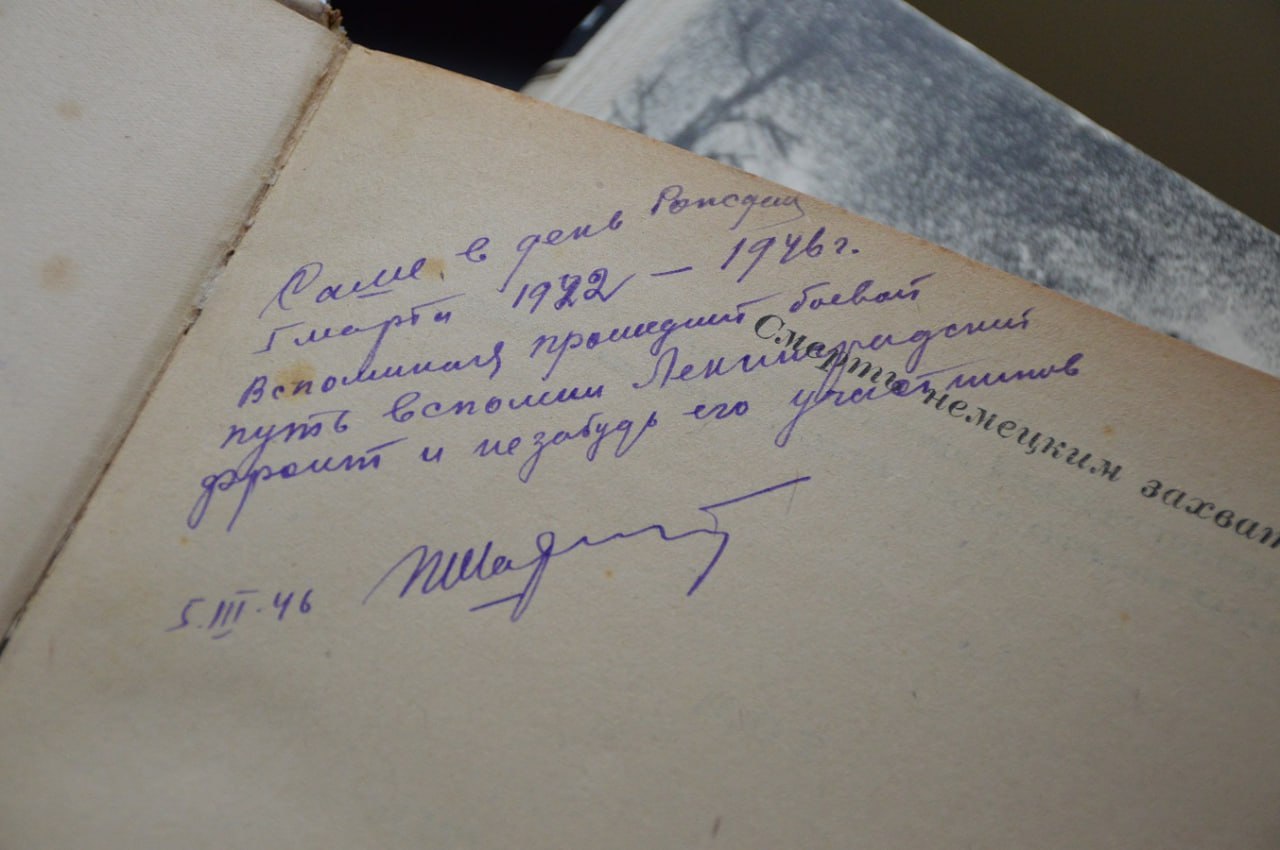 Саше в день Рождения
5 марта 1922 — 1946 г.
Вспоминая прошедший боевой
путь вспомни Ленинградский
фронт и незабудь его участников
5.III.46
Смерть немецким захват